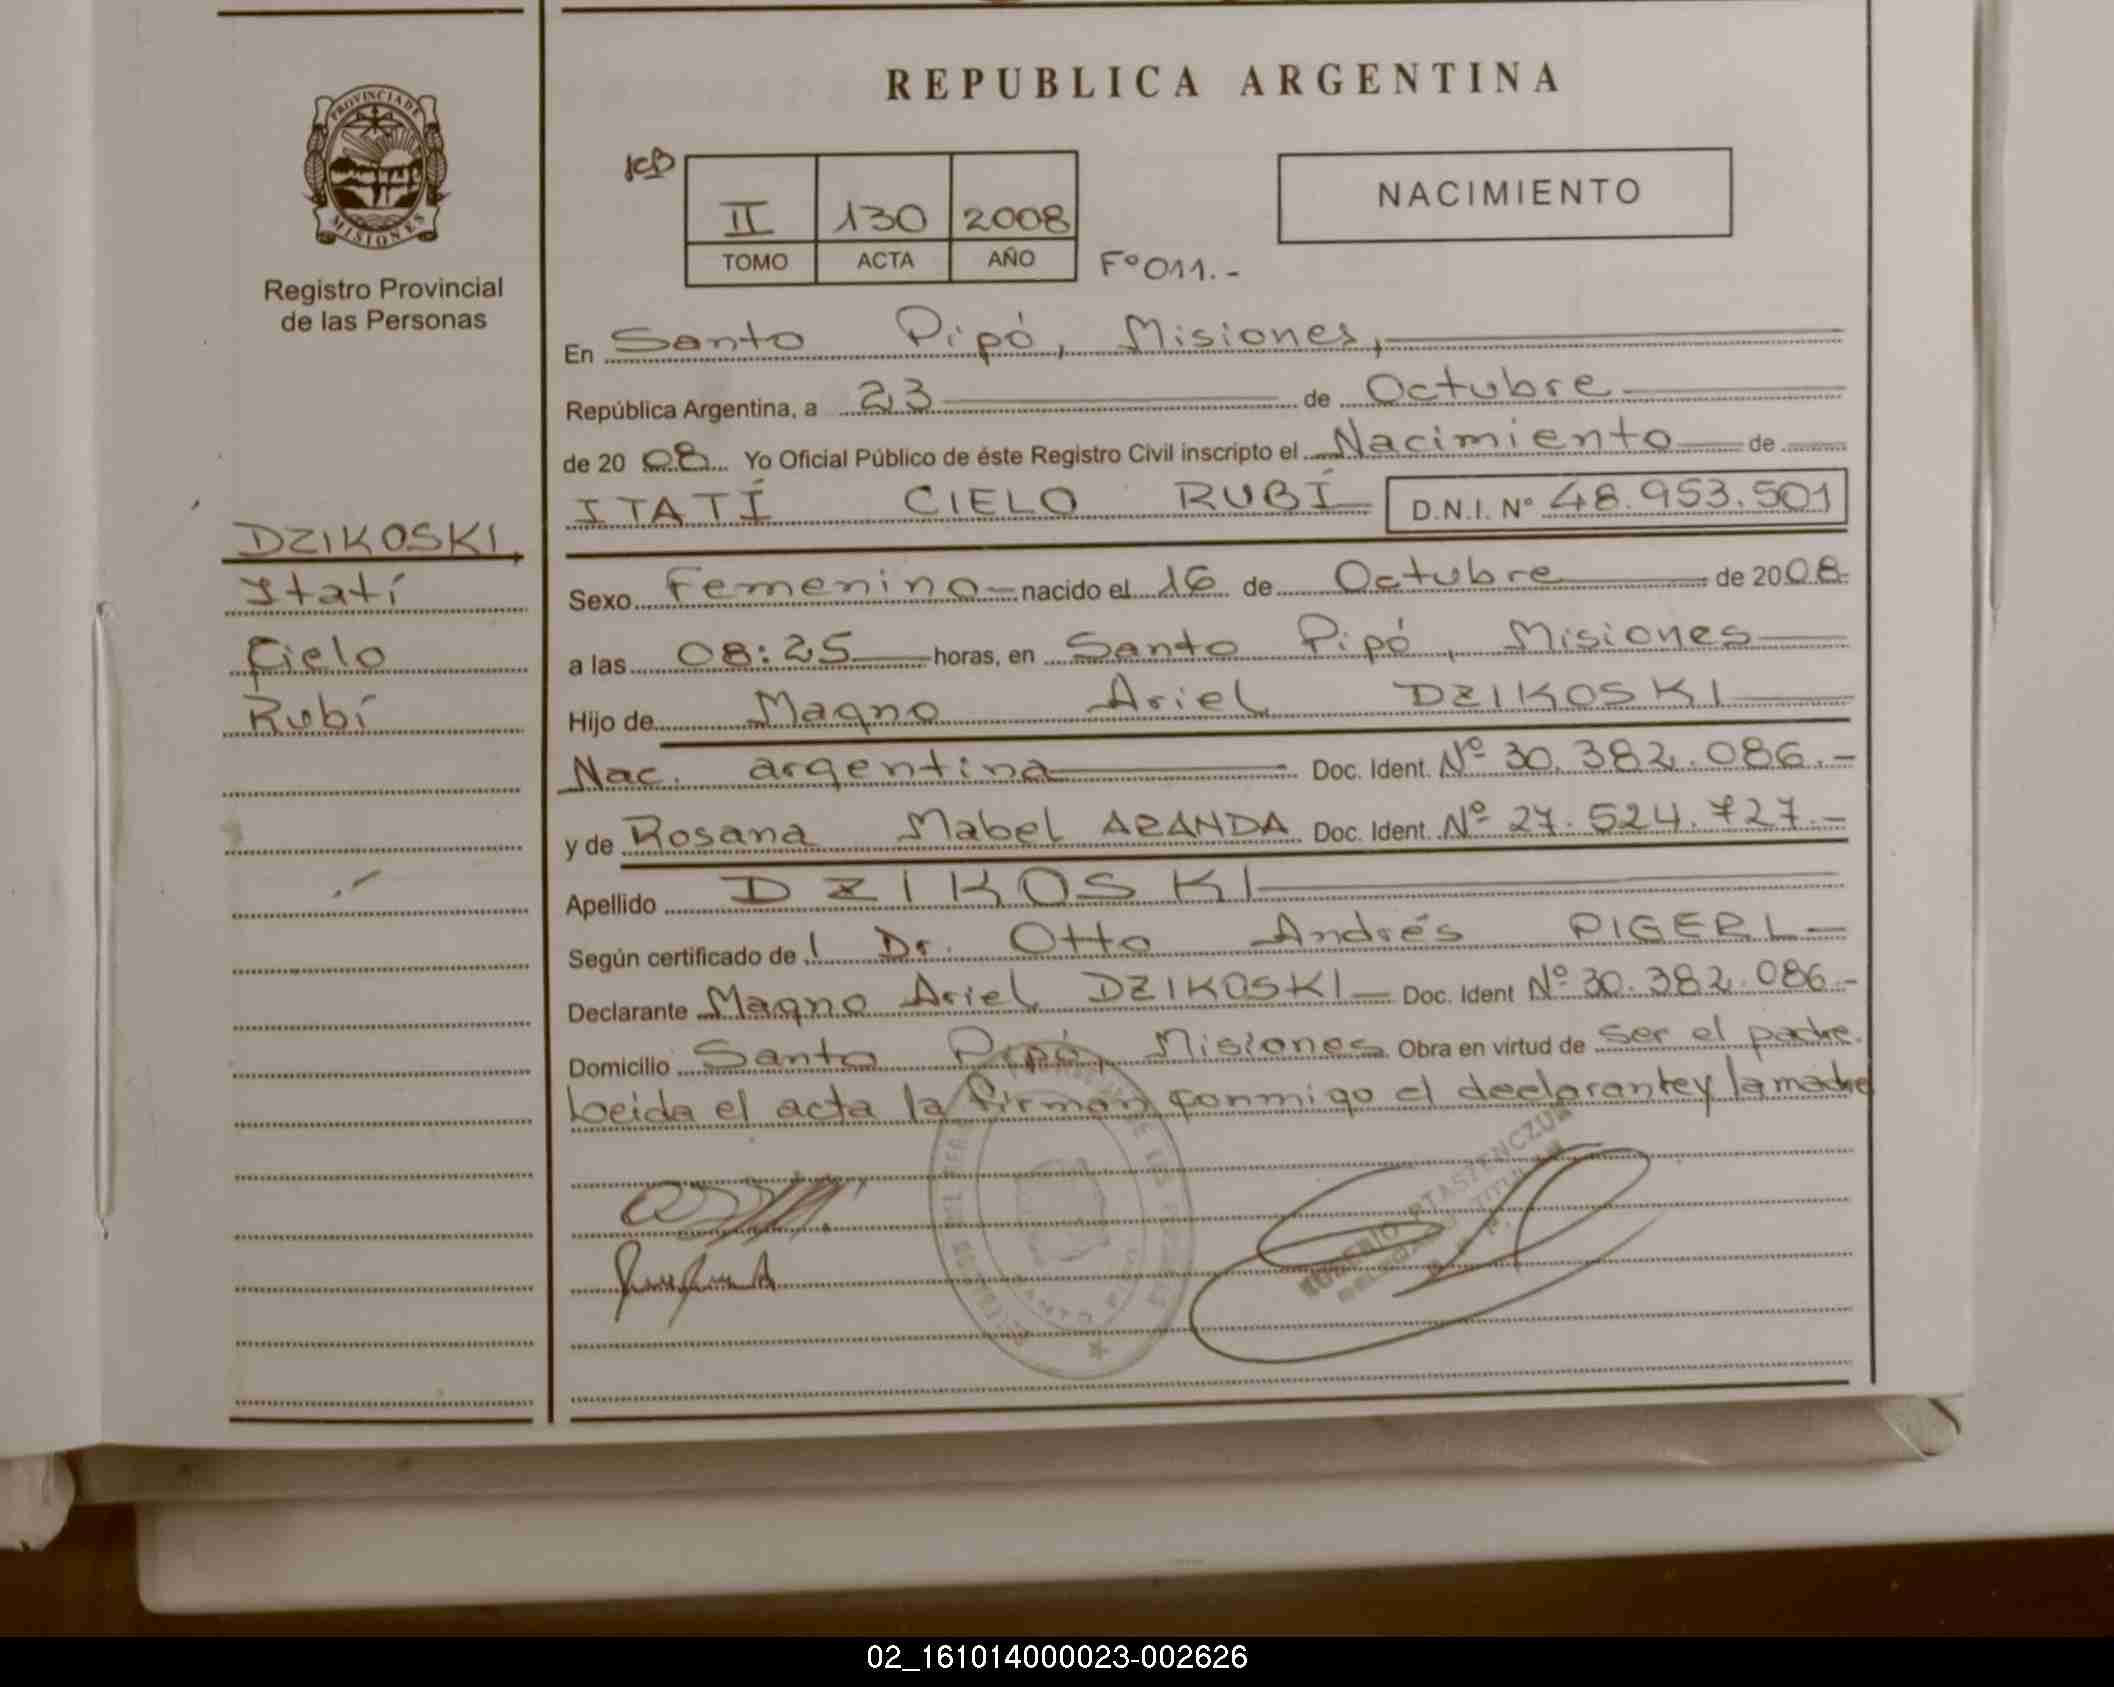 REPUBLICA ARGENTINA
PROVINCIA DE
MISIONES
Registro Provincial
de las Personas
II 130 2008
TOMO ACTA AÑO
Fº 011.-
NACIMIENTO
En Santo Pipó, Misiones,
República Argentina, a 23 de Octubre
de 2008 Yo Oficial Público de éste Registro Civil inscripto el Nacimiento de
ITATÍ CIELO RUBÍ D.N.I. Nº 48.953.501
DZIKOSKI,
Itatí
Cielo
Rubí
Sexo Femenino nacido el 16 de Octubre de 2008
a las 08:25 horas, en Santo Pipó, Misiones
Hijo de Magno Ariel DZIKOSKI
Nac. argentina Doc. Ident. Nº 30.382.086.-
y de Rosana Mabel ARANDA Doc. Ident. Nº 27.524.727.-
Apellido DZIKOSKI
Según certificado de l Dr. Otto Andrés PIGERL
Declarante Magno Ariel DZIKOSKI Doc. Ident Nº 30.382.086.-
Domicilio Santo Pipó, Misiones. Obra en virtud de ser el padre.
Leida el acta la firman conmigo el declarante y la madre
02_161014000023-002626